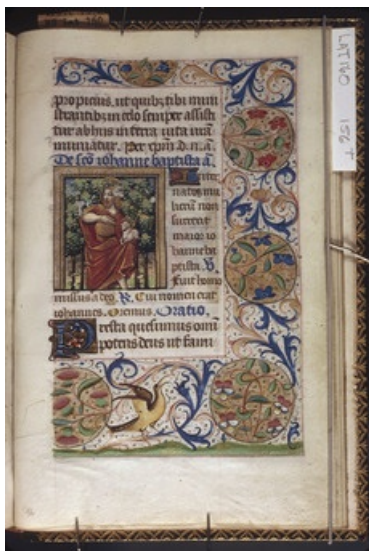 propicius. ut quib; tibi mini
strantib; in celo semper assisti
tur ab hiis in terra uita nr̄a
muniatur. Per xpm d. n. a.
De sc̄o iohanne baptista a.
Inter
natos mu
lierū non
surrexit
maior io
hanne ba
ptista. V.
Fuit homo
missus a deo. R. Cui nomen erat
iohannes. Oremus. Oratio.
Presta quesumus omī
potens deus ut fami
LATINO 156